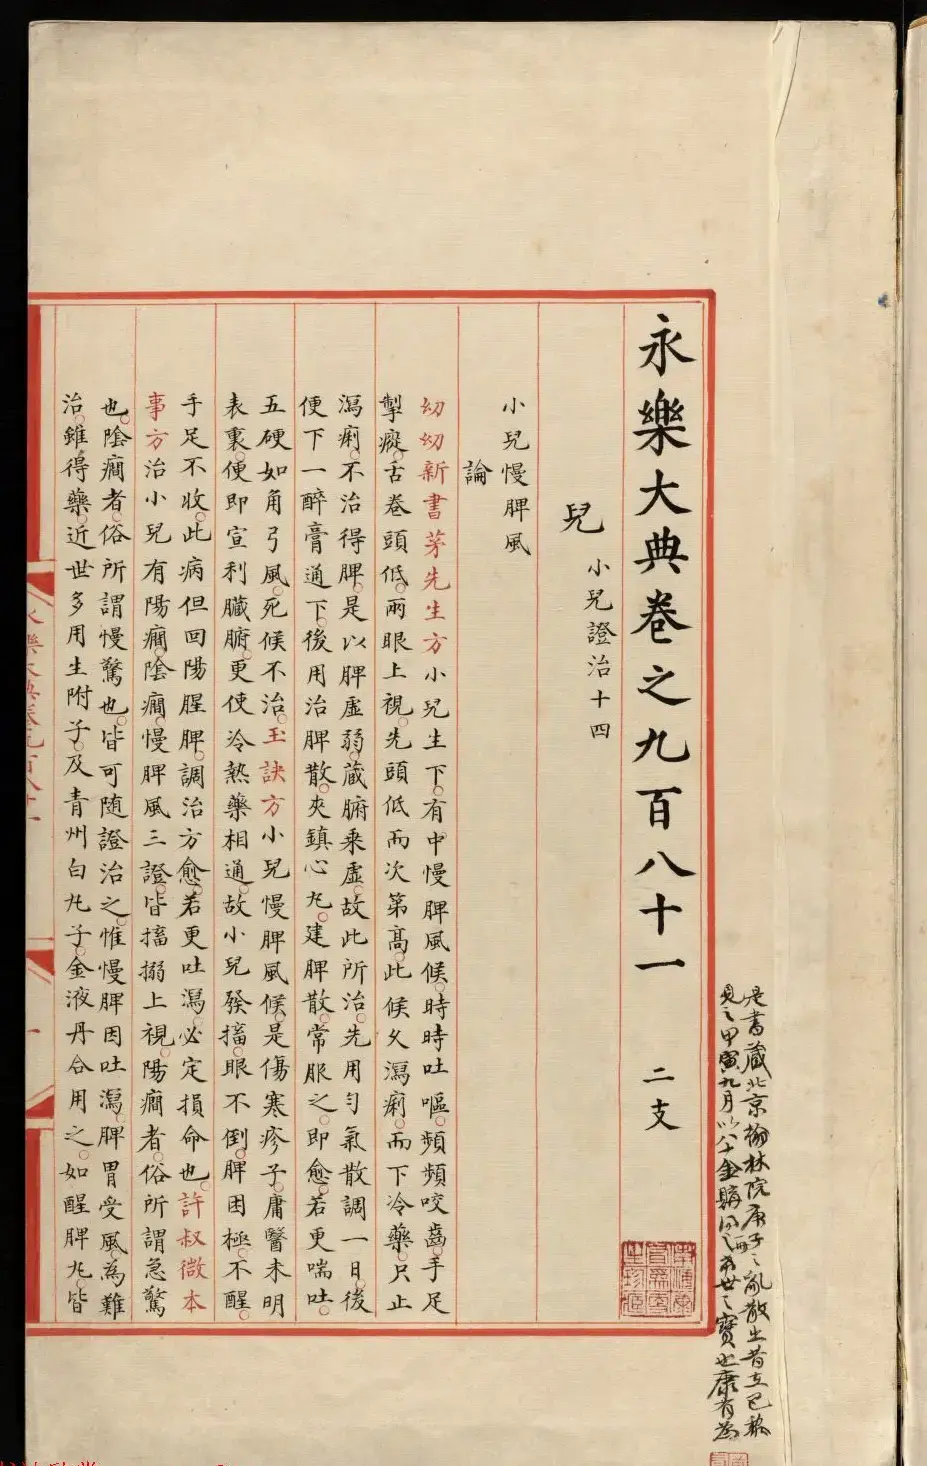 永樂大典卷之九百八十一 二支
兒 小兒證治十四
小兒慢脾風
論
幼幼新書茅先生方小兒生下。有中慢脾風候。時時吐嘔。頻頻咬齒。手足
掣癡。舌卷頭低。兩眼上視。先頭低而次第高。此候久瀉痢。而下冷藥。只止
瀉痢。不治得脾。是以脾虛弱。藏腑乘虛。故此所治。先用勻氣散調一日。後
便下一醉膏通下。後用治脾散。夾鎮心丸。建脾散。常服之。即愈。若更喘吐。
五硬如角弓風。死候不治。玉訣方小兒慢脾風候。是傷寒疹子。庸醫未明
表裏。便即宣利臟腑。更使冷熱藥相通。故小兒發搐。眼不倒。脾困極。不醒。
手足不收。此病但回陽腥脾。調治方愈。若更吐瀉。必定損命也。許叔微本
事方治小兒有陽癎。陰癎。慢脾風三證。皆搐搦上視。陽癎者。俗所謂急驚
也。陰癎者。俗所謂慢驚也。皆可隨證治之。惟慢脾因吐瀉。脾胃受風。為難
治。雖得藥。近世多用生附子。及青州白丸子。金液丹合用之。如醒脾丸。皆
是書藏北京翰林院庚子之亂散出昔立已極
見之甲寅九月以八十金購得之
世之寶也康有為